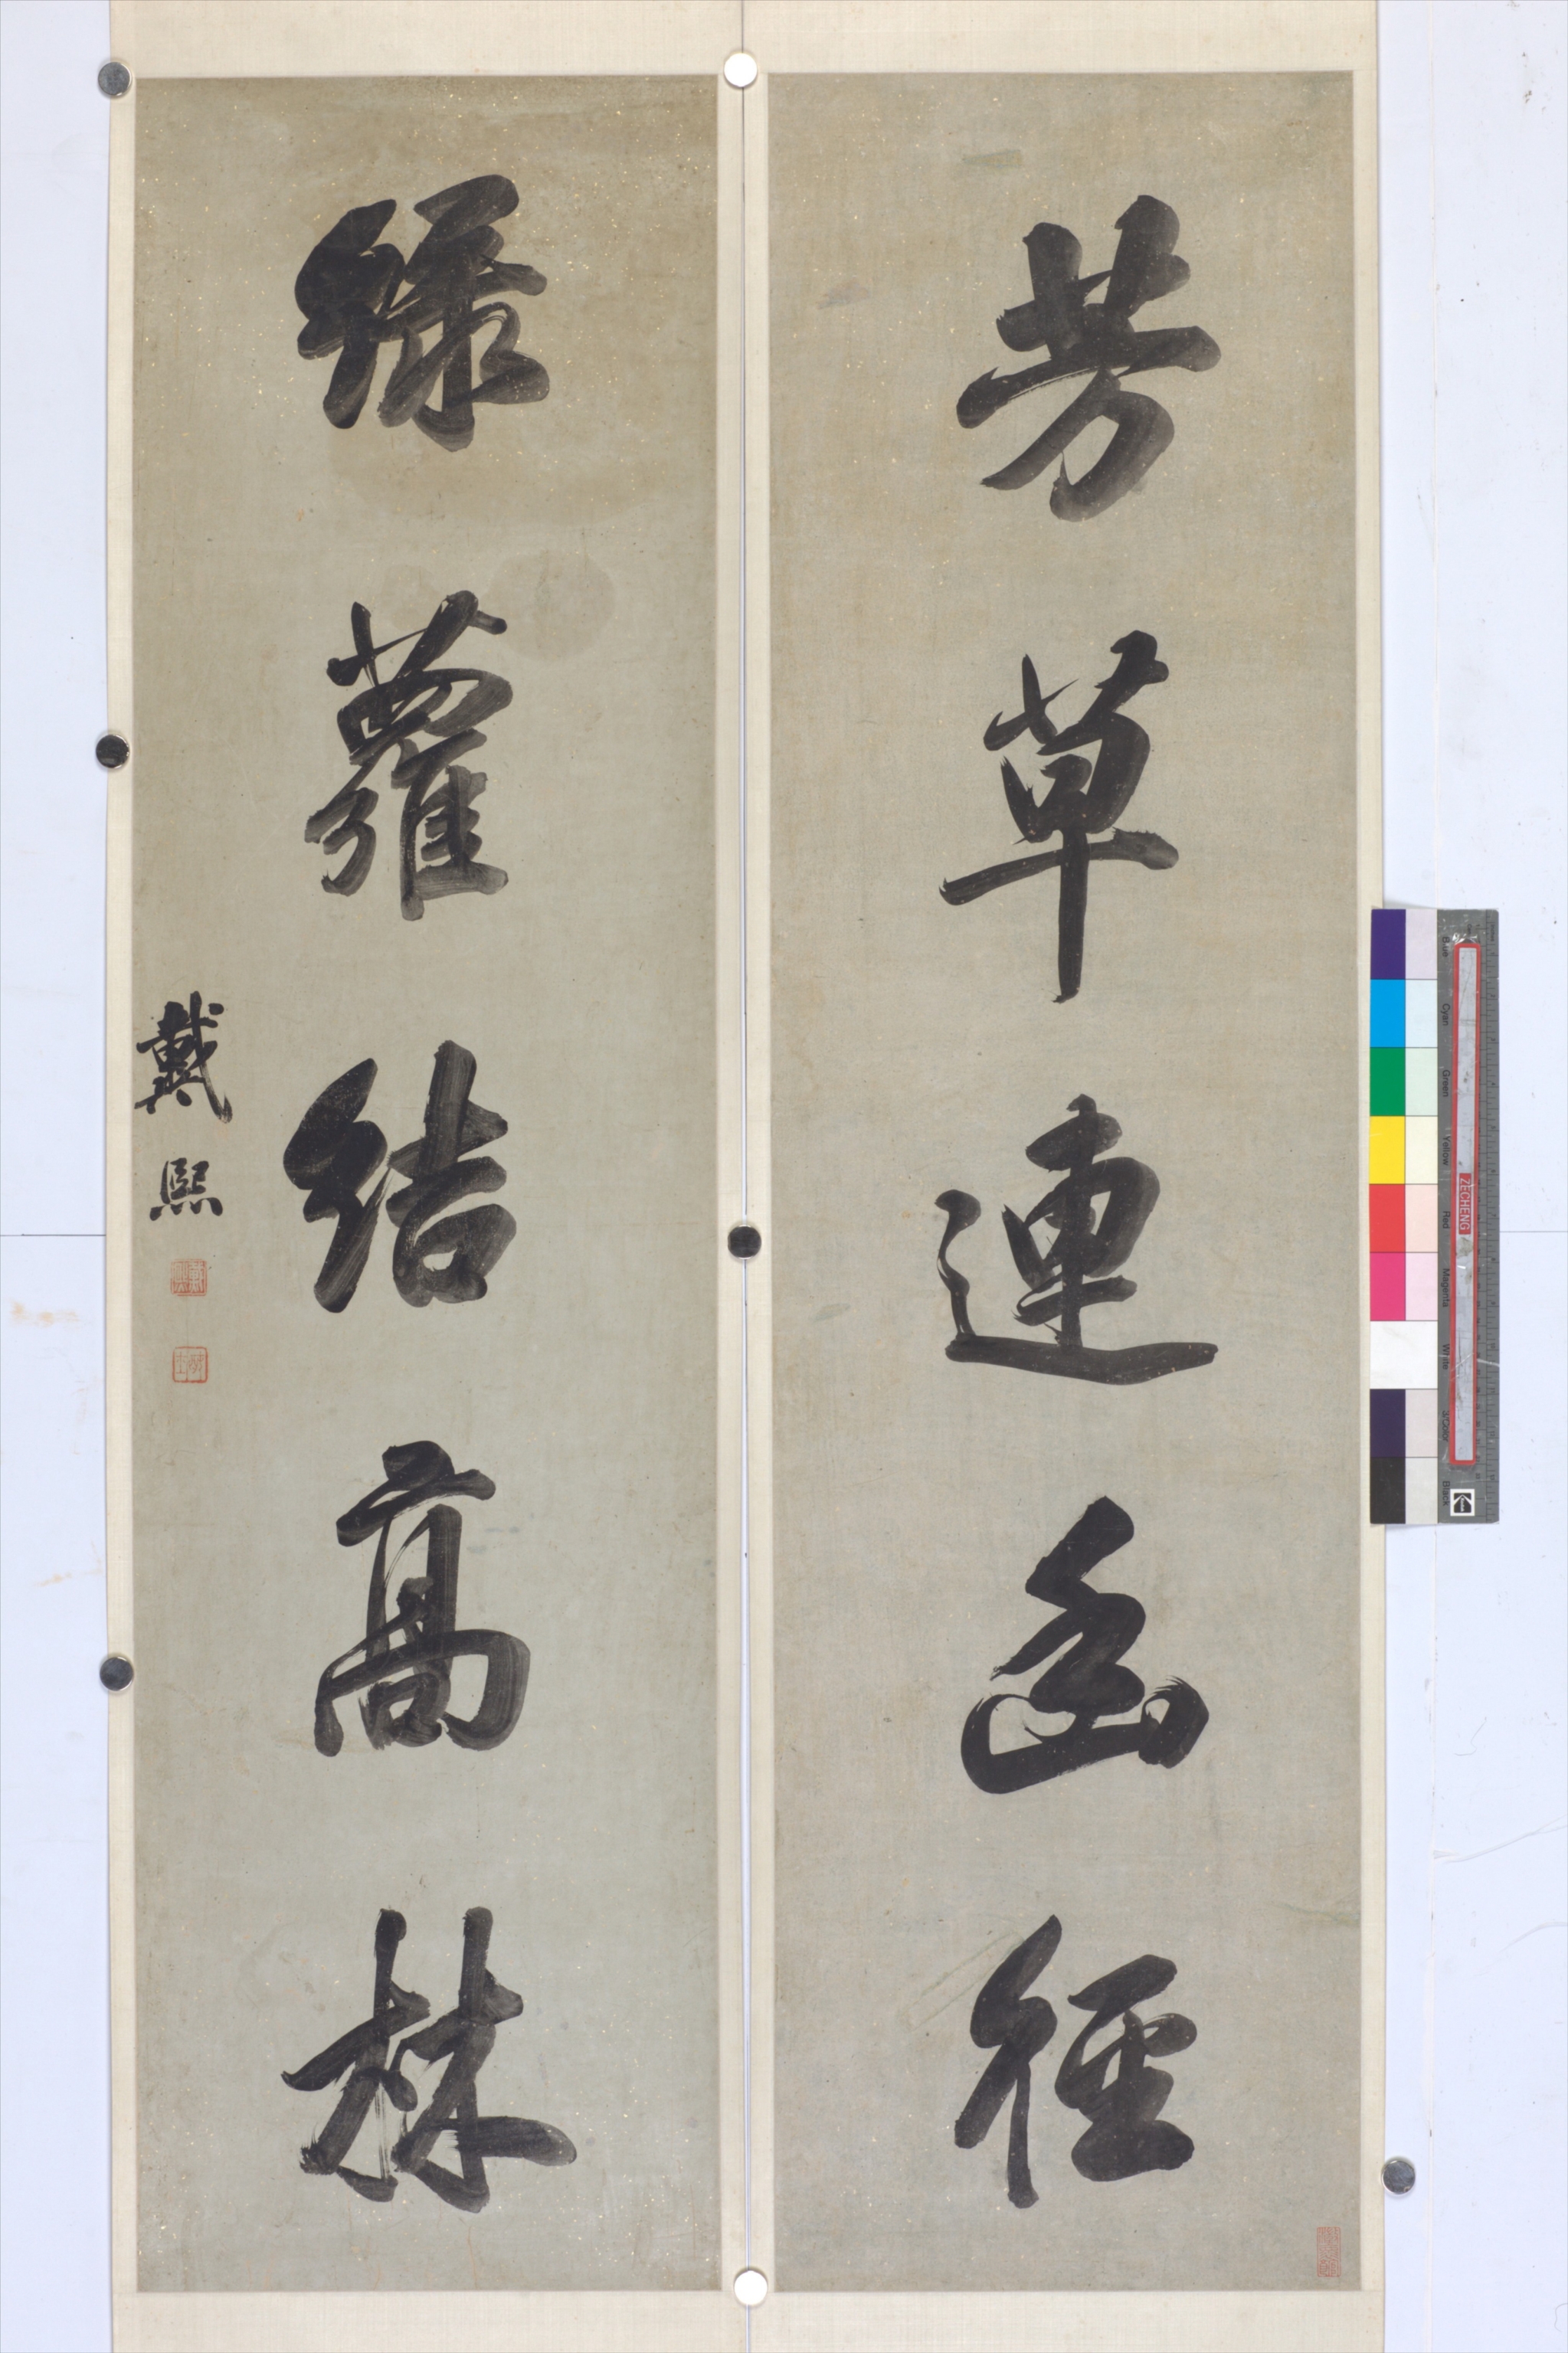 芳草連幽徑
綠蘿結高林
戴熙
Blue
Cyan
Green
Yellow
Red
Magenta
White
3/Color
Black
ZECHENG